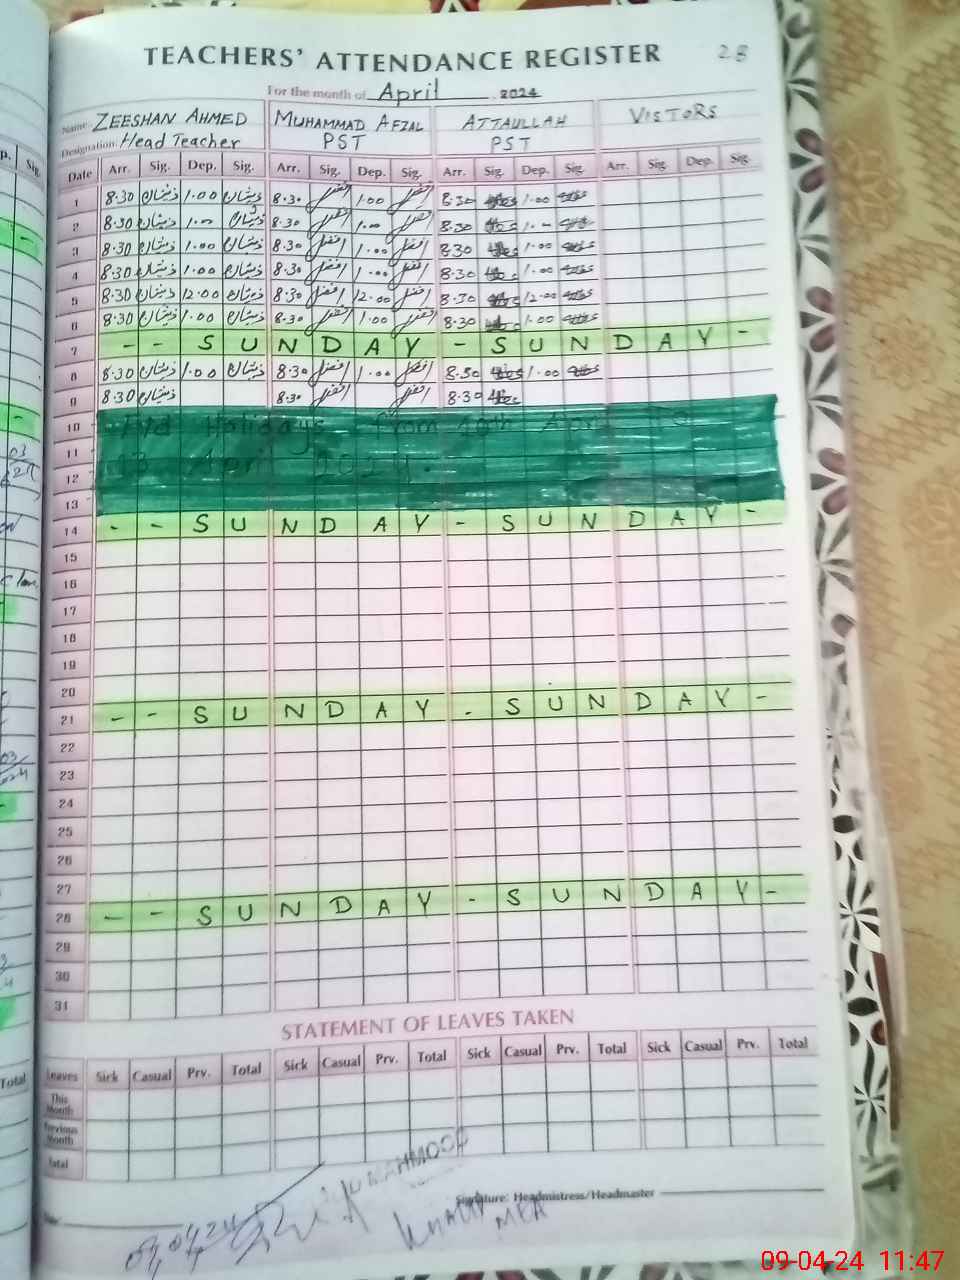 TEACHERS' ATTENDANCE REGISTER 28
For the month of April 2024
Name: ZEESHAN AHMED MUHAMMAD AFZAL ATTAULLAH VISTORS
Designation: Head Teacher PST PST
Date Arr. Sig. Dep. Sig. Arr. Sig. Dep. Sig. Arr. Sig. Dep. Sig. Arr. Sig. Dep. Sig.
1 8.30 ذیشان 1.00 ذیشان 8.30 افضل 1.00 افضل 8.30 1.00
2 8.30 ذیشان 1.00 ذیشان 8.30 افضل 1.00 افضل 8.30 1.00
3 8.30 ذیشان 1.00 ذیشان 8.30 افضل 1.00 افضل 8.30 1.00
4 8.30 ذیشان 1.00 ذیشان 8.30 افضل 1.00 افضل 8.30 1.00
5 8.30 ذیشان 12.00 ذیشان 8.30 افضل 12.00 افضل 8.30 12.00
6 8.30 ذیشان 1.00 ذیشان 8.30 افضل 1.00 افضل 8.30 1.00
7 - - S U N D A Y - S U N D A Y -
8 8.30 ذیشان 1.00 ذیشان 8.30 افضل 1.00 افضل 8.30 1.00
9 8.30 ذیشان 8.30 افضل 8.30
10 Holidays from 10th April To
11
12 13 April 2024.
13
14 - - S U N D A Y - S U N D A Y -
15
16
17
18
19
20
21 - - S U N D A Y - S U N D A Y -
22
23
24
25
26
27
28 - - S U N D A Y - S U N D A Y -
29
30
31
STATEMENT OF LEAVES TAKEN
Leaves Sick Casual Prv. Total Sick Casual Prv. Total Sick Casual Prv. Total Sick Casual Prv. Total
This Month
Previous Month
Total
Signature: Headmistress/Headmaster
MAHMOOD
MEA
09-04-24 11:47